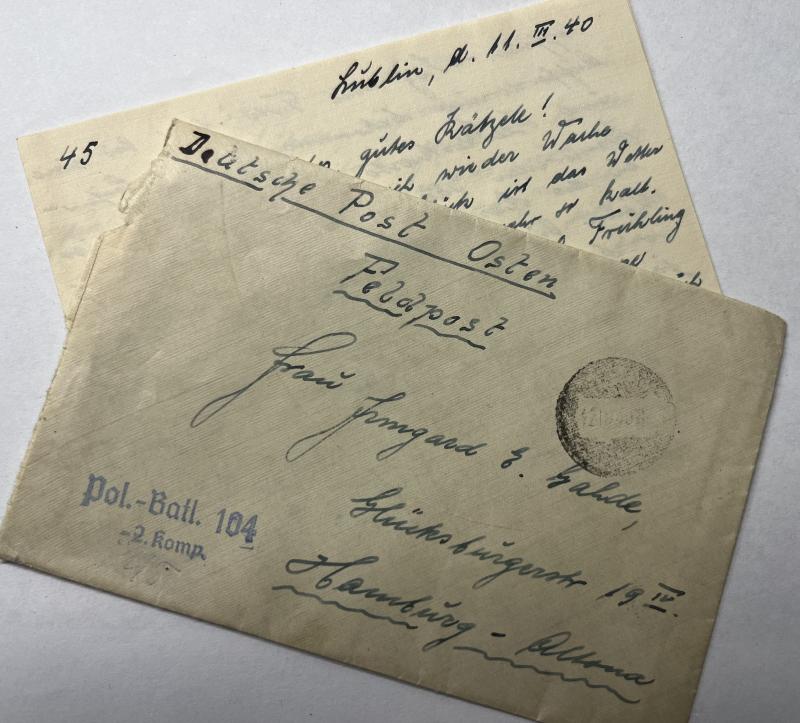 Lublin, d. 11. III. 40
45
gutes Kätzele!
ich wieder Wache
ist das Wetter
mehr so kalt.
Frühling
Deutsche Post Osten
Feldpost
Frau Irmgard
Glücksburgerstr 19 IV.
Hamburg - Altona
Pol.-Batl. 104
-2. Komp.